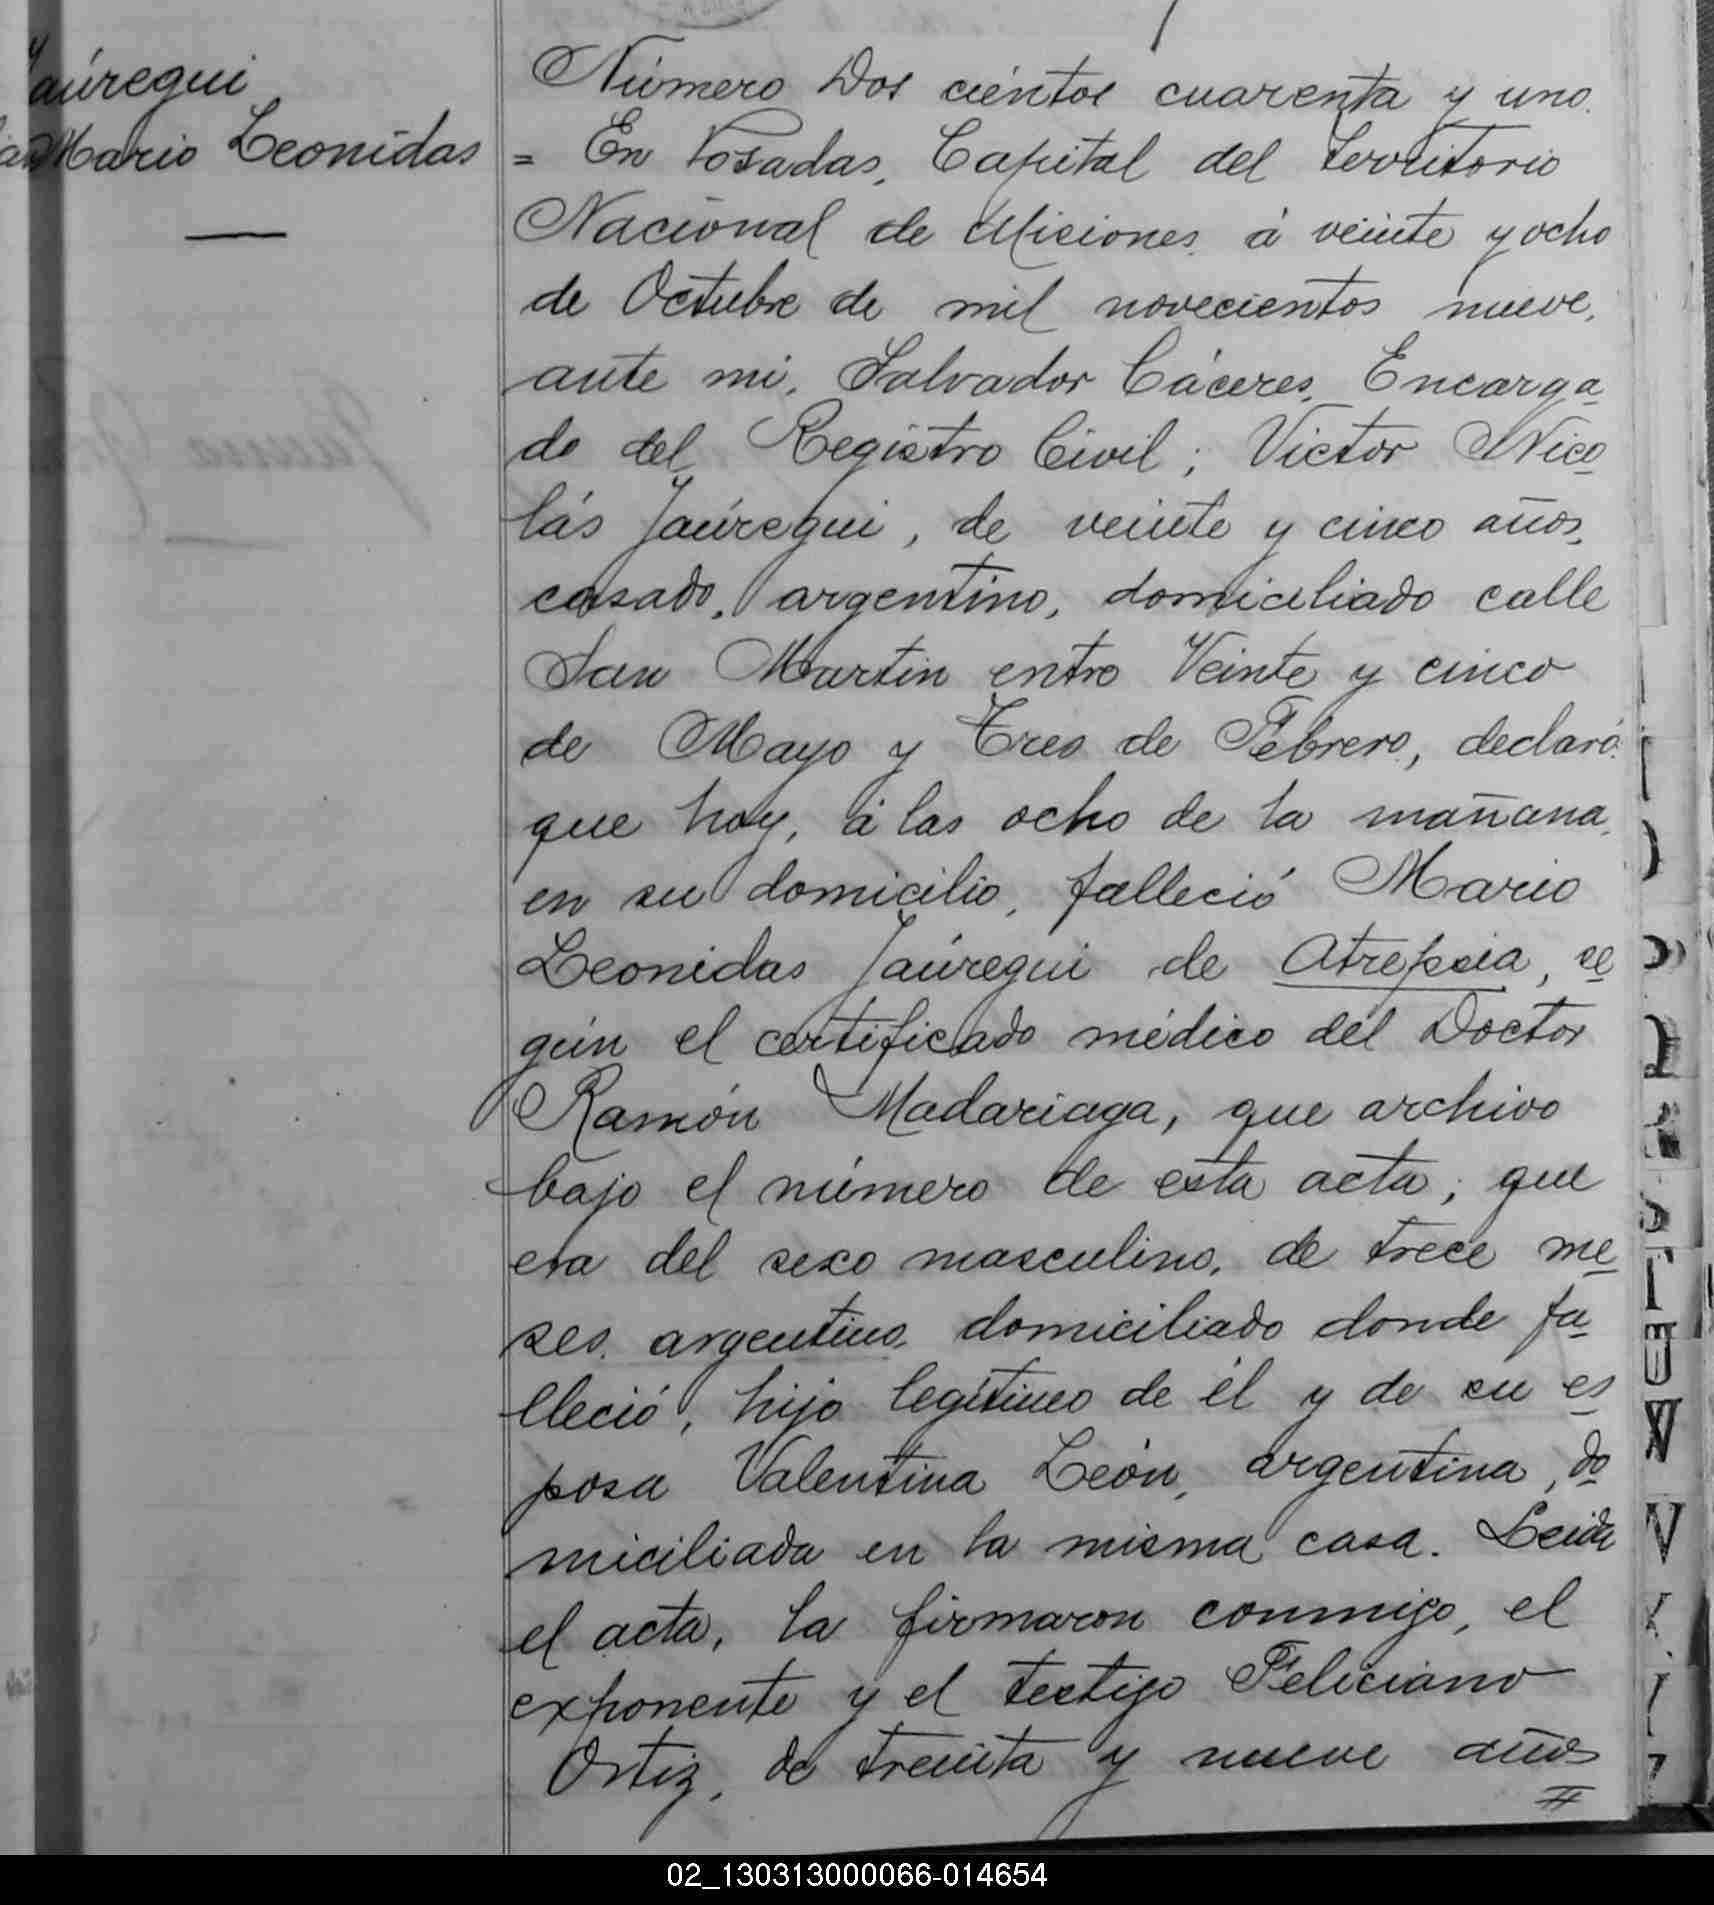 Jaúregui
Mario Leonidas
Número Dos cientos cuarenta y uno.
= En Posadas, Capital del Territorio
Nacional de Misiones, á veinte y ocho
de Octubre de mil novecientos nueve,
ante mi, Salvador Cáceres, Encarga-
do del Registro Civil; Victor Nico-
lás Jaúregui, de veinte y cinco años,
casado, argentino, domiciliado calle
San Martin entre Veinte y cinco
de Mayo y Tres de Febrero, declaró:
que hoy, á las ocho de la mañana,
en su domicilio, falleció Mario
Leonidas Jaúregui de Atrepsia, se-
gún el certificado médico del Doctor
Ramón Madariaga, que archivo
bajo el número de esta acta; que
era del sexo masculino, de trece me-
ses, argentino, domiciliado donde fa-
lleció, hijo legítimo de él y de su es-
posa Valentina León, argentina, do-
miciliada en la misma casa. Leida
el acta, la firmaron conmigo, el
exponente y el testigo Feliciano
Ortiz, de treinta y nueve años
02_130313000066-014654